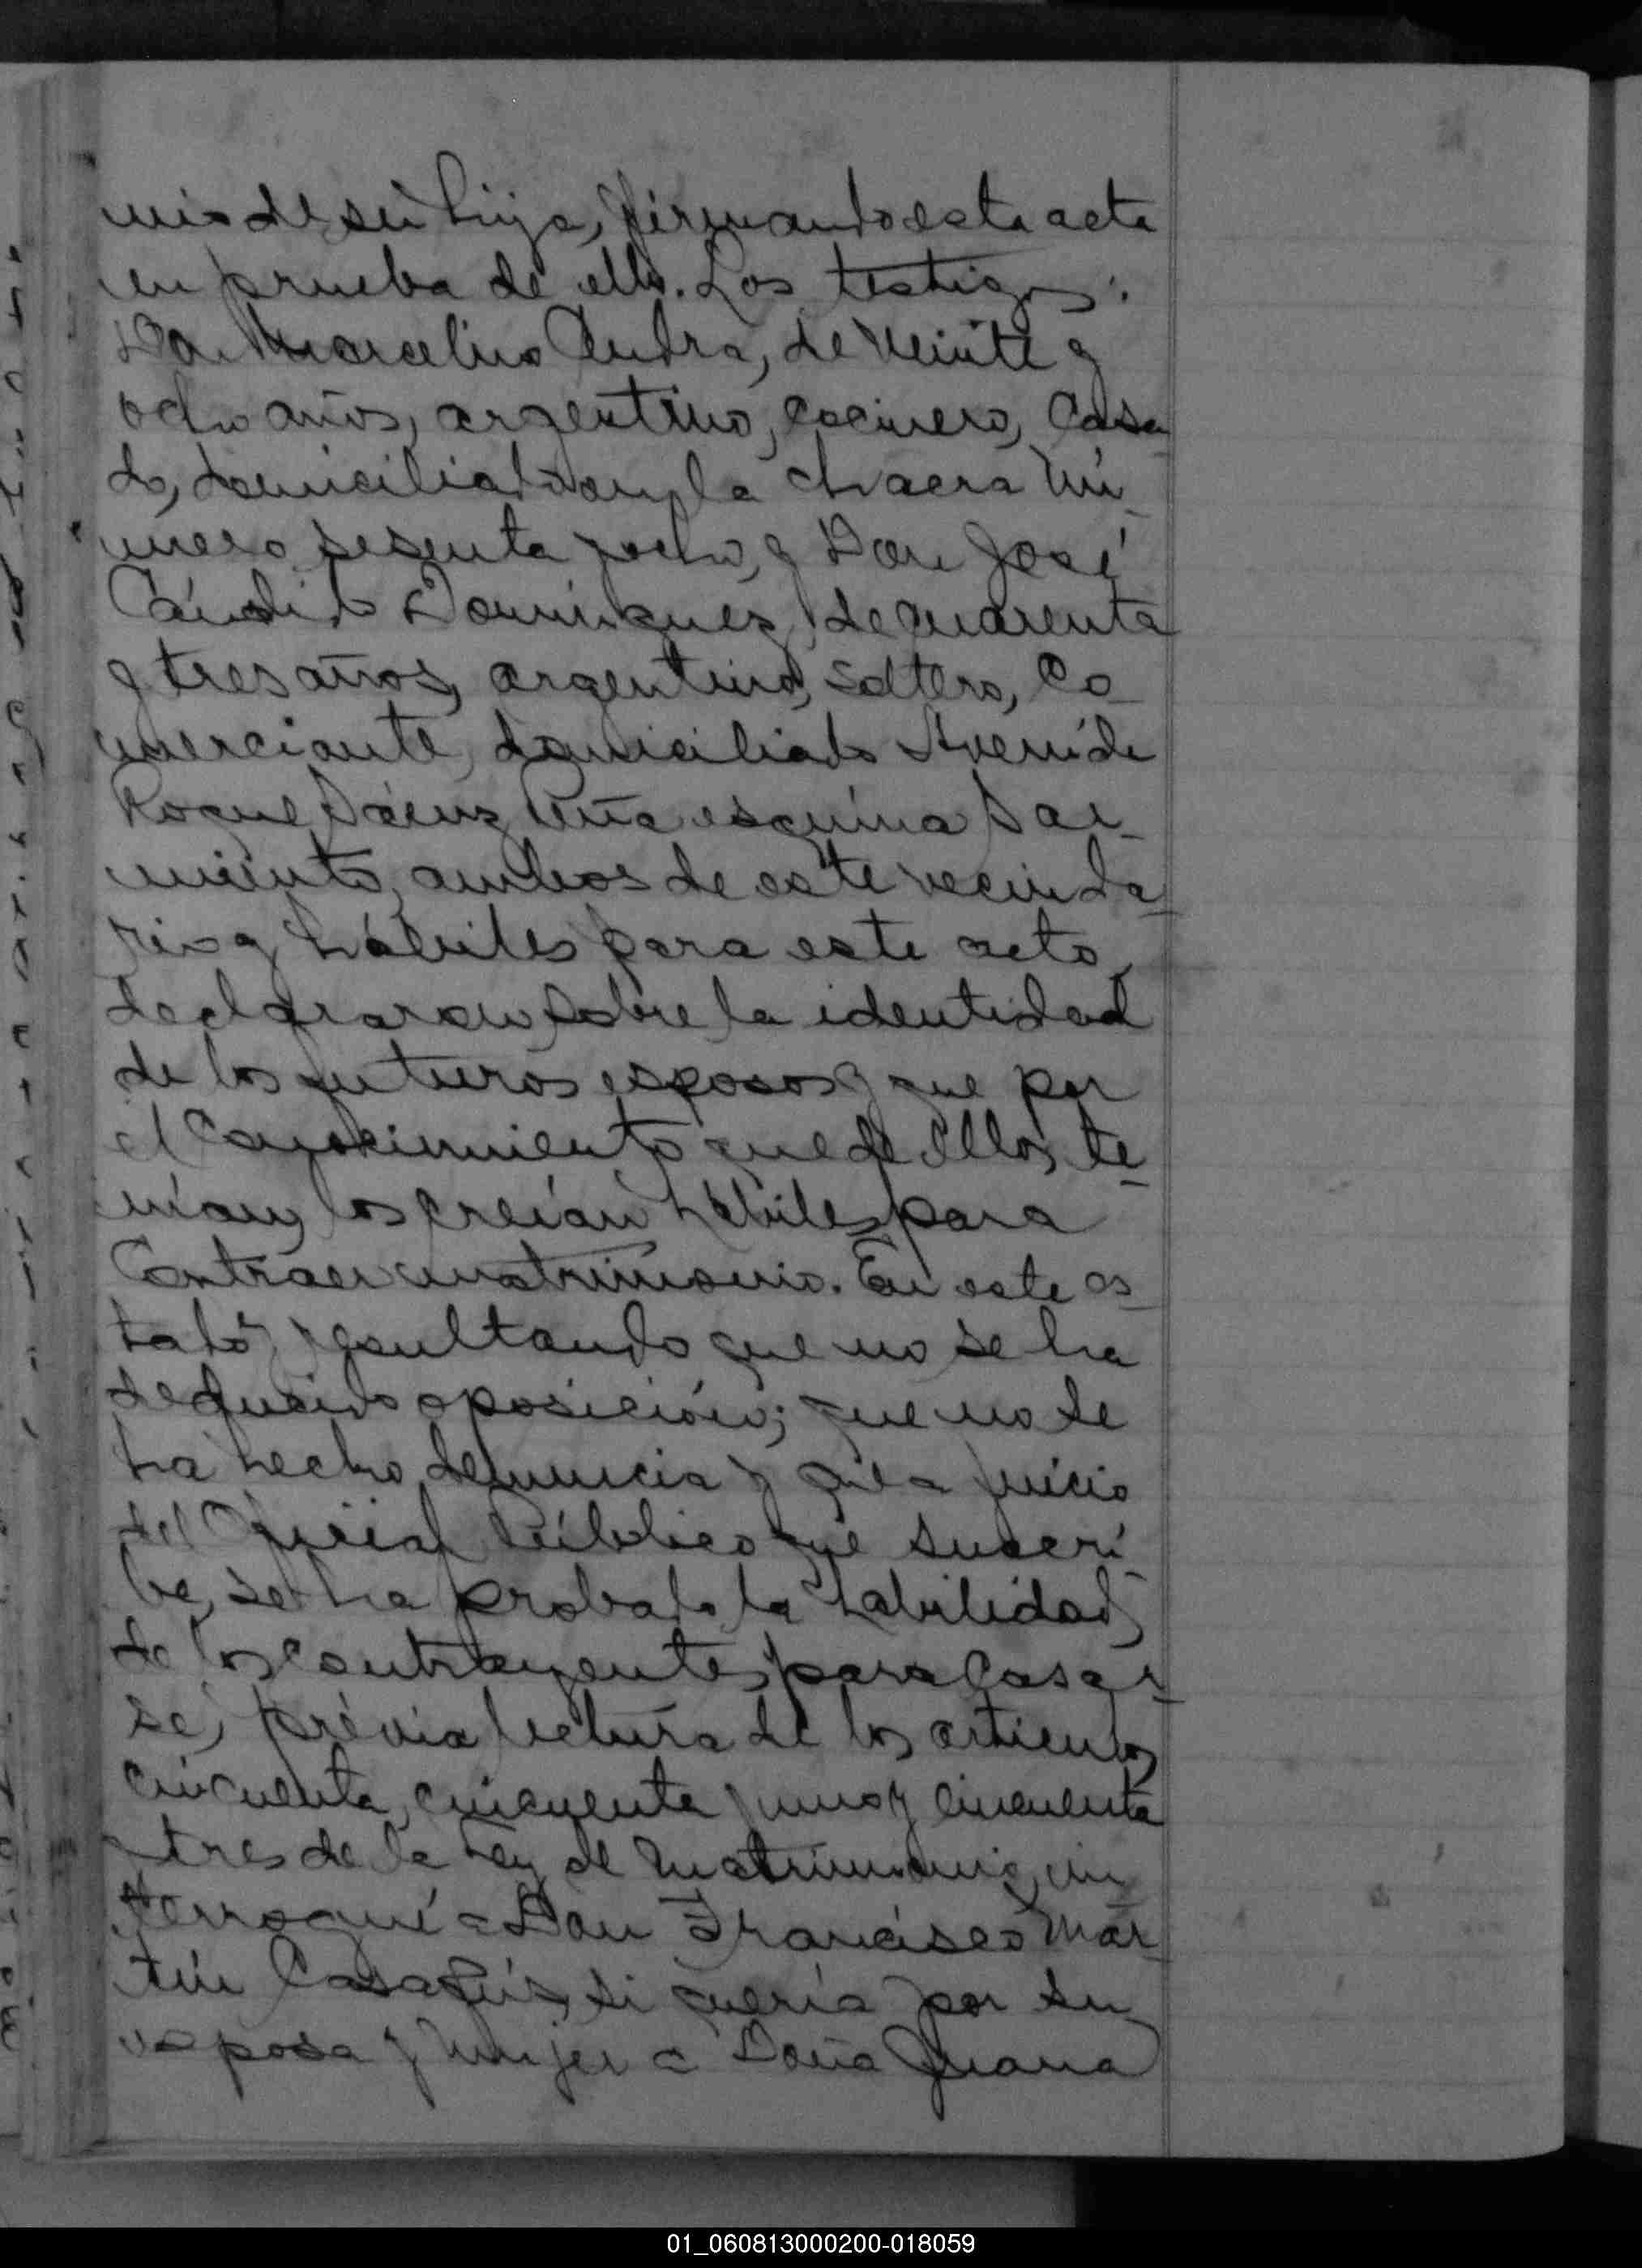 nio de su hija, firmando esta acta
en prueba de ello. Los testigos:
Don Marcelino Audra, de veinte y
ocho años, argentino, cocinero, casa
do, domiciliado en la chacra nú-
mero sesenta y ocho, y Don José
Cándido Dominguez, de cuarenta
y tres años, argentino, soltero, co-
merciante, domiciliado Avenida
Roque Sáenz Peña esquina Sar-
miento, ambos de este vecinda-
rio y hábiles para este acto,
declararon sobre la identidad
de los futuros esposos y que por
el conocimiento que de ellos te-
nían, los creían hábiles para
contraer matrimonio. En este es-
tado y resultando que no se ha
deducido oposición; que no se
ha hecho denuncia y que a juicio
del Oficial Público que suscri-
be, se ha probado la habilidad
de los contrayentes para casar-
se, prévia lectura de los artículos
cincuenta, cincuenta y uno y cincuenta
y tres de la Ley de Matrimonio, in-
terrogué a Don Francisco Mar-
tín si quería por su
esposa y mujer a Doña Juana
01_060813000200-018059